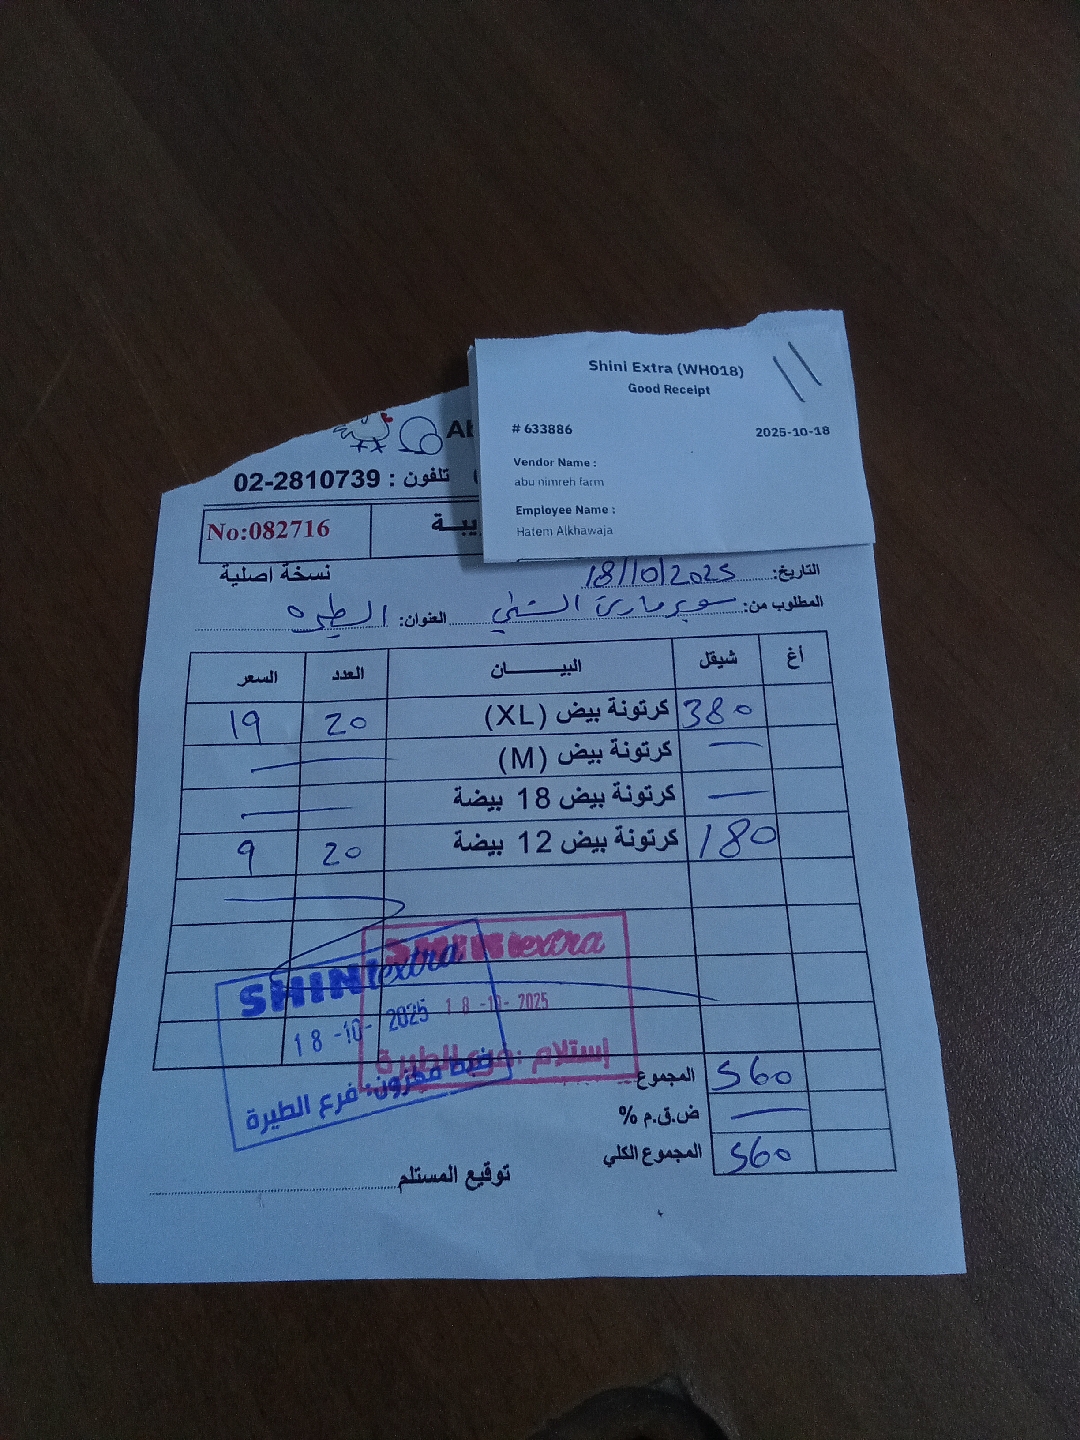 Shini Extra (WH018)
Good Receipt
# 633886 2025-10-18
Vendor Name :
abu nimreh farm
Employee Name :
Hatem Alkhawaja
تلفون : 02-2810739
No:082716
نسخة اصلية
التاريخ: 18/10/2025
المطلوب من: سوبر ماركت الشني العنوان: الطيره
أغ شيقل البيــــــان العدد السعر
380 كرتونة بيض (XL) 20 19
كرتونة بيض (M)
كرتونة بيض 18 بيضة
180 كرتونة بيض 12 بيضة 20 9
SHINI extra
18-10-2025
إستلام : فرع الطيرة
SHINI extra
18-10-2025
ضبط مخزون: فرع الطيرة
المجموع 560
ض.ق.م %
المجموع الكلي 560
توقيع المستلم